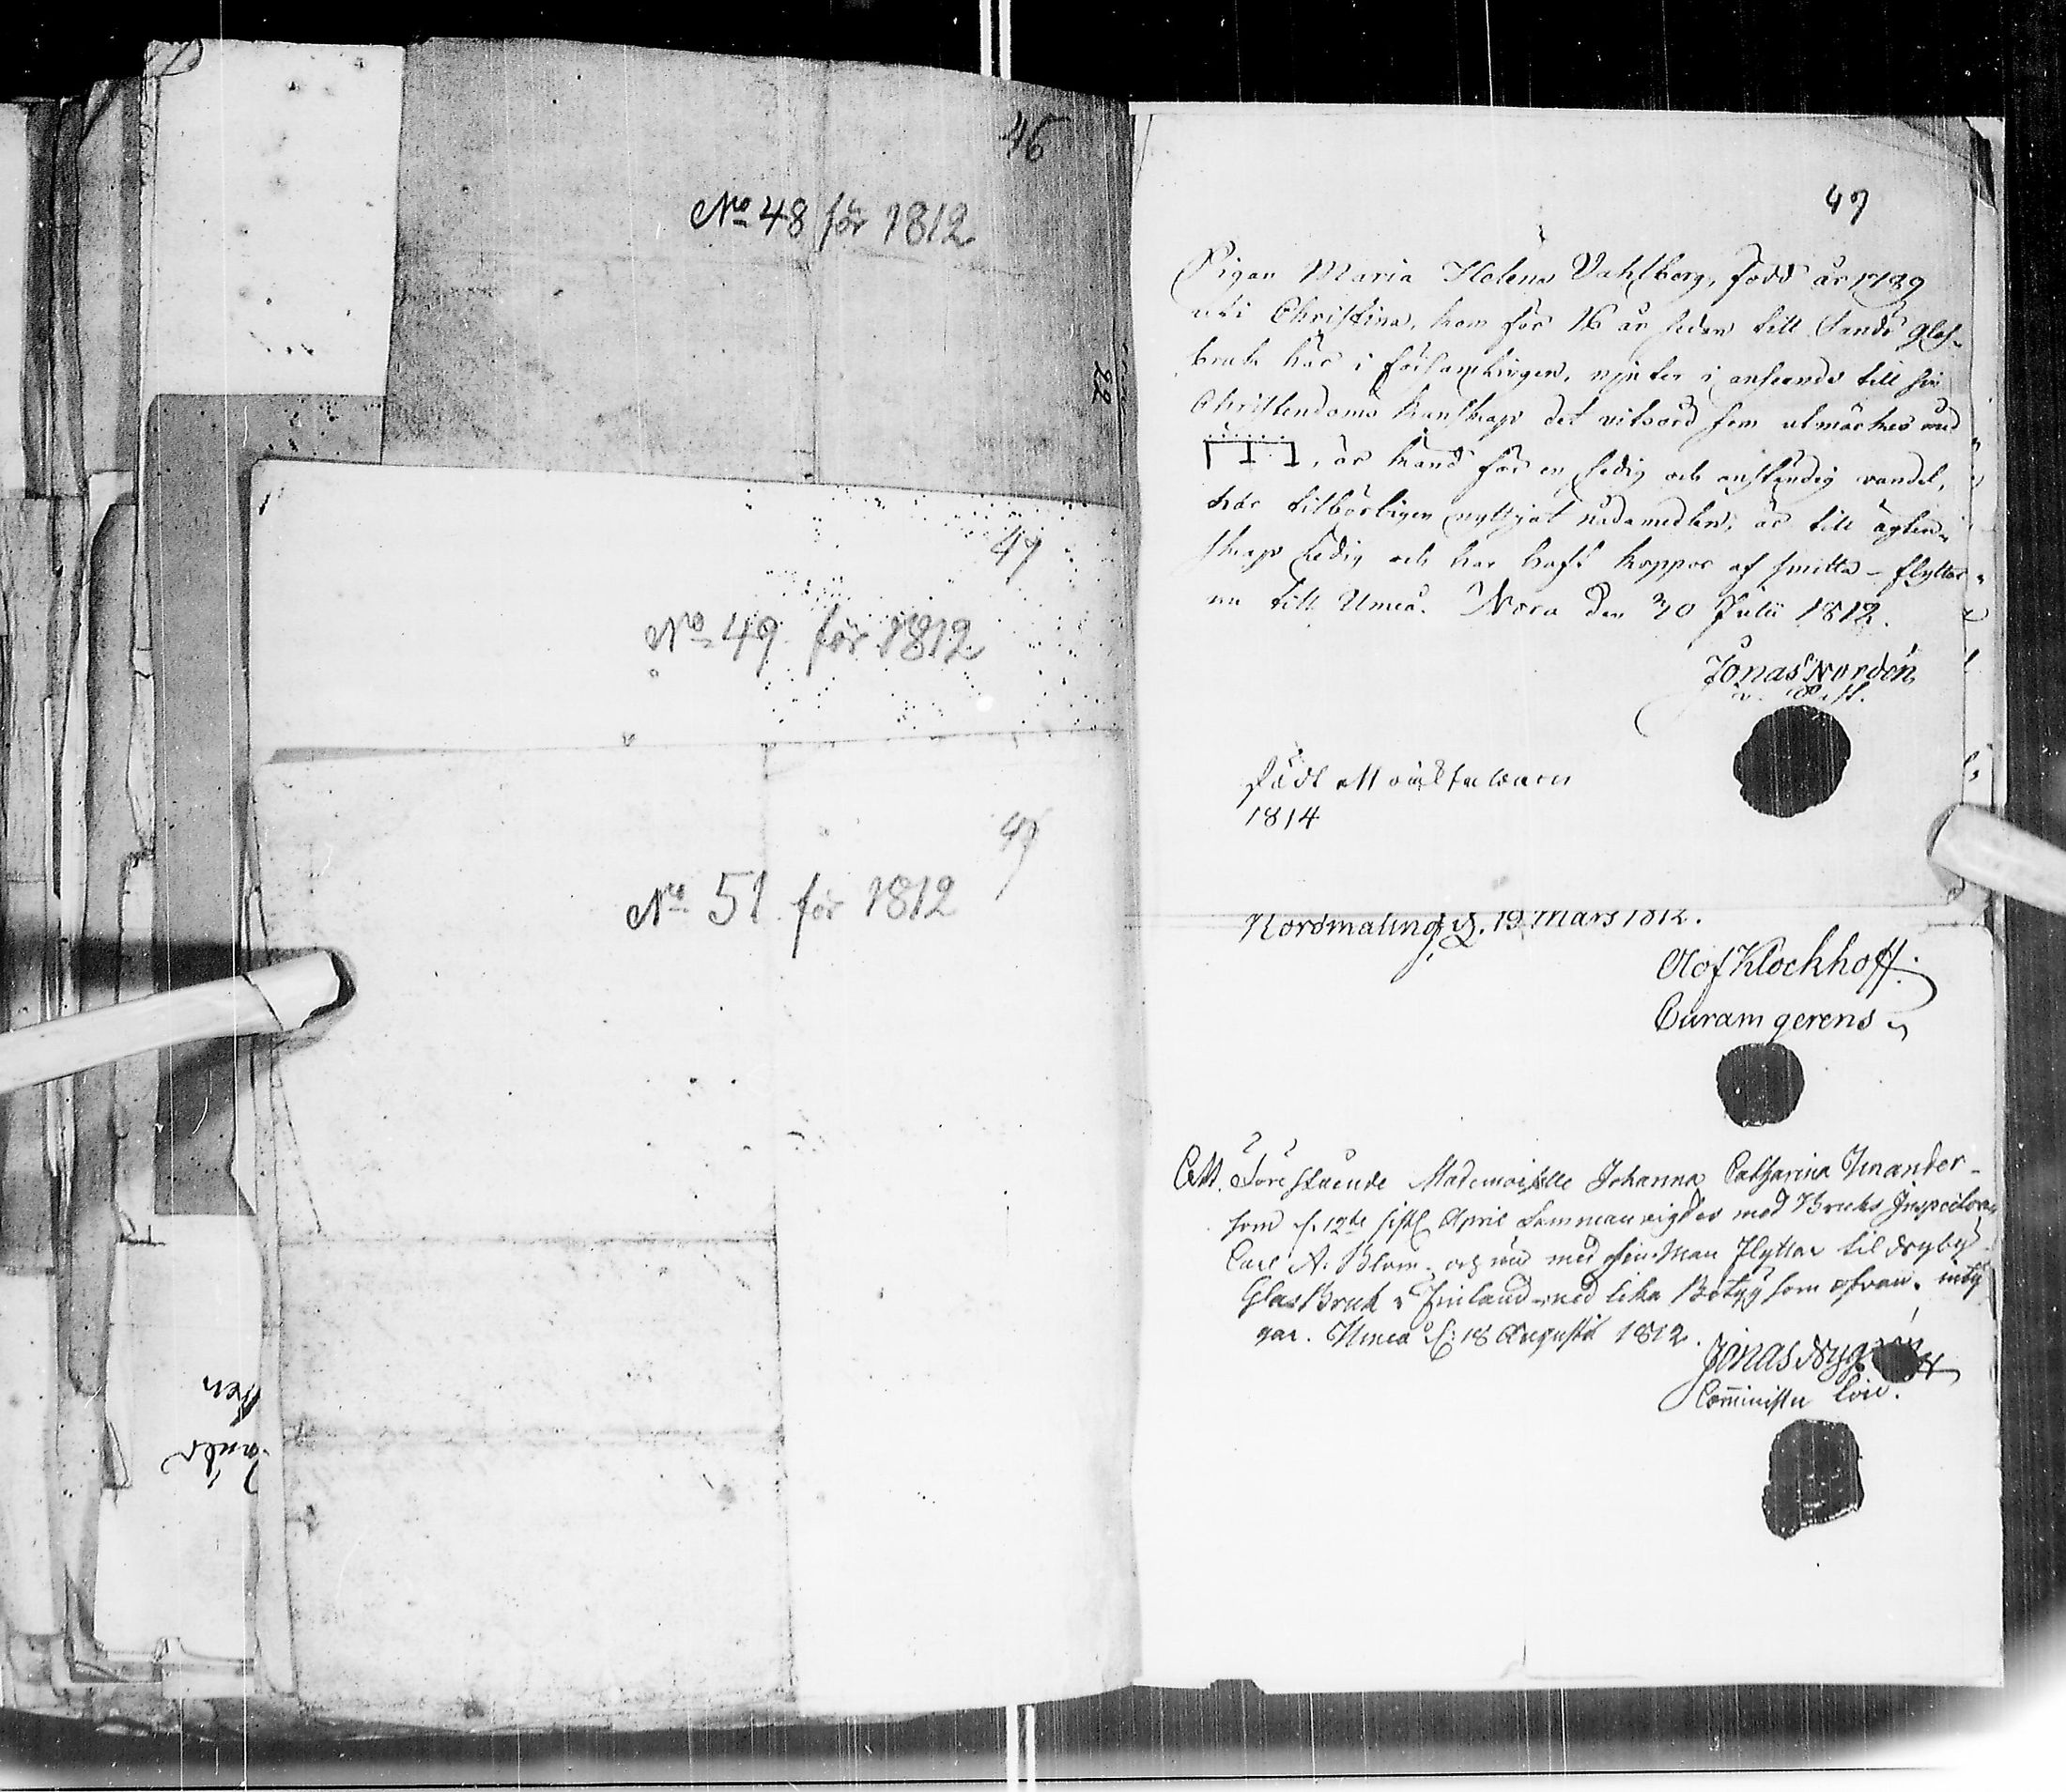 46
No 48 för 1812
22
47
No 49 för 1812
47
No 51 för 1812
47
Pigan Maria Helena Vahlberg, född år 1789
uti Christina, kom för 16 år sedan till Sandö Glas-
bruk här i församlingen, njuter i anseende till sin
Christendoms kunskap det vitsord som utmärkes med
, är känd för en sedig och anständig vandel,
har tilbörligen nyttjat nådamedlen, är till ägten-
skap ledig och har haft koppor af smitta - flyttar
nu till Umeå. Nora den 20 Julii 1812.
Jonas Nordén
v. Past.
Födt ett oäkta barn
1814
Nordmaling d. 19 Mars 1812.
Olof Klockhoff.
Curam gerens
Att Förestående Mademoiselle Johanna Catharina Unander-
som d. 12te sistl. April Sammanvigdes med Bruks Inspectoren
Carl A. Blom, och nu med sin Man flyttar til Nyby
Glas Bruk i Finland med lika Betyg som ofvan, inty
gar. Umeå d: 18 Augusti 1812.
Jonas
Comminister loci.